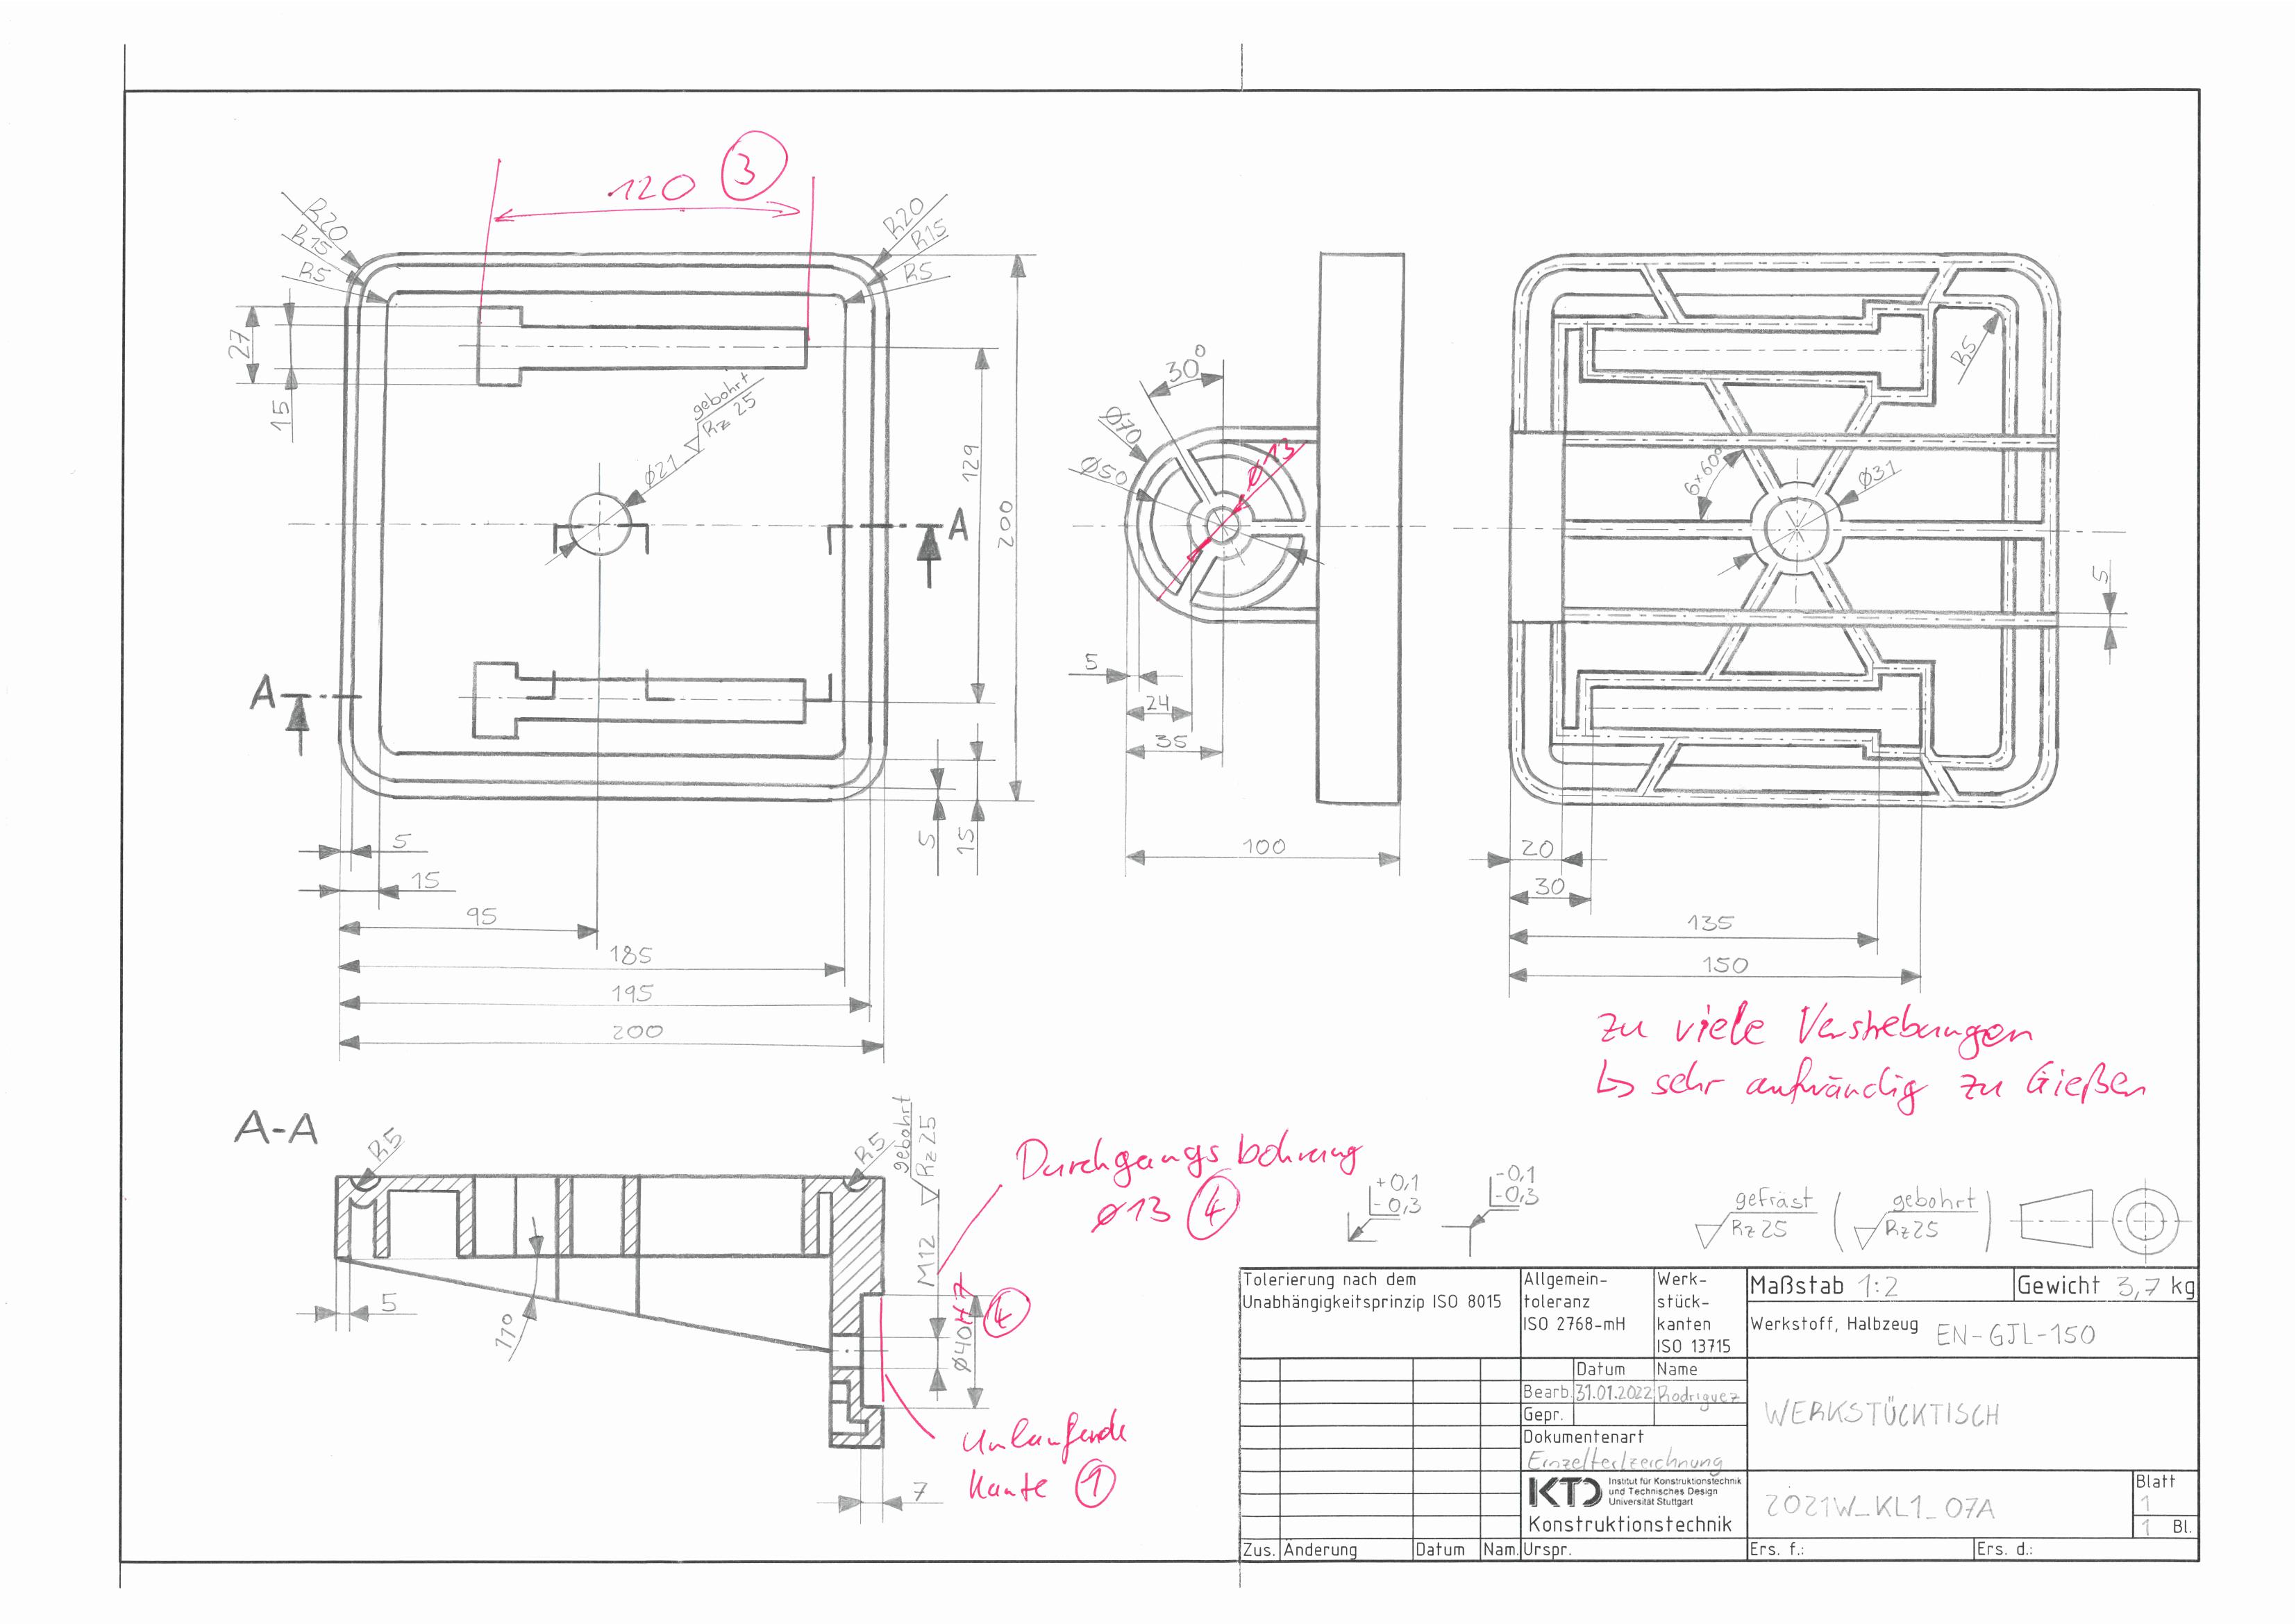 120 ③
R20
R15
R5
R20
R15
R5
27
15
gebohrt
Rz 25
Ø21
129
200
A
A
5
15
5
15
95
185
195
200
30°
Ø70
Ø50
Ø13
5
24
35
100
R5
6×60°
Ø31
5
20
30
135
150
zu viele Verstrebungen
↳ sehr aufwändig zu Gießen
A-A
R5
R5
gebohrt
Rz 25
M12
Durchgangsbohrung
Ø13 ④
Ø40H7 ④
5
11°
7
Umlaufende
Kante ①
+0,1
-0,3
-0,1
-0,3
gefräst
Rz 25
( gebohrt )
Rz 25
Tolerierung nach dem
Unabhängigkeitsprinzip ISO 8015
Allgemein-
toleranz
ISO 2768-mH
Werk-
stück-
kanten
ISO 13715
Maßstab 1:2
Gewicht 3,7 kg
Werkstoff, Halbzeug EN-GJL-150
Datum Name
Bearb. 31.01.2022 Rodriguez
Gepr.
Dokumentenart
Einzelteilzeichnung
WERKSTÜCKTISCH
KTD
Institut für Konstruktionstechnik
und Technisches Design
Universität Stuttgart
Konstruktionstechnik
2021W_KL1_07A
Blatt
1
1 Bl.
Zus. Änderung Datum Nam. Urspr. Ers. f.: Ers. d.: